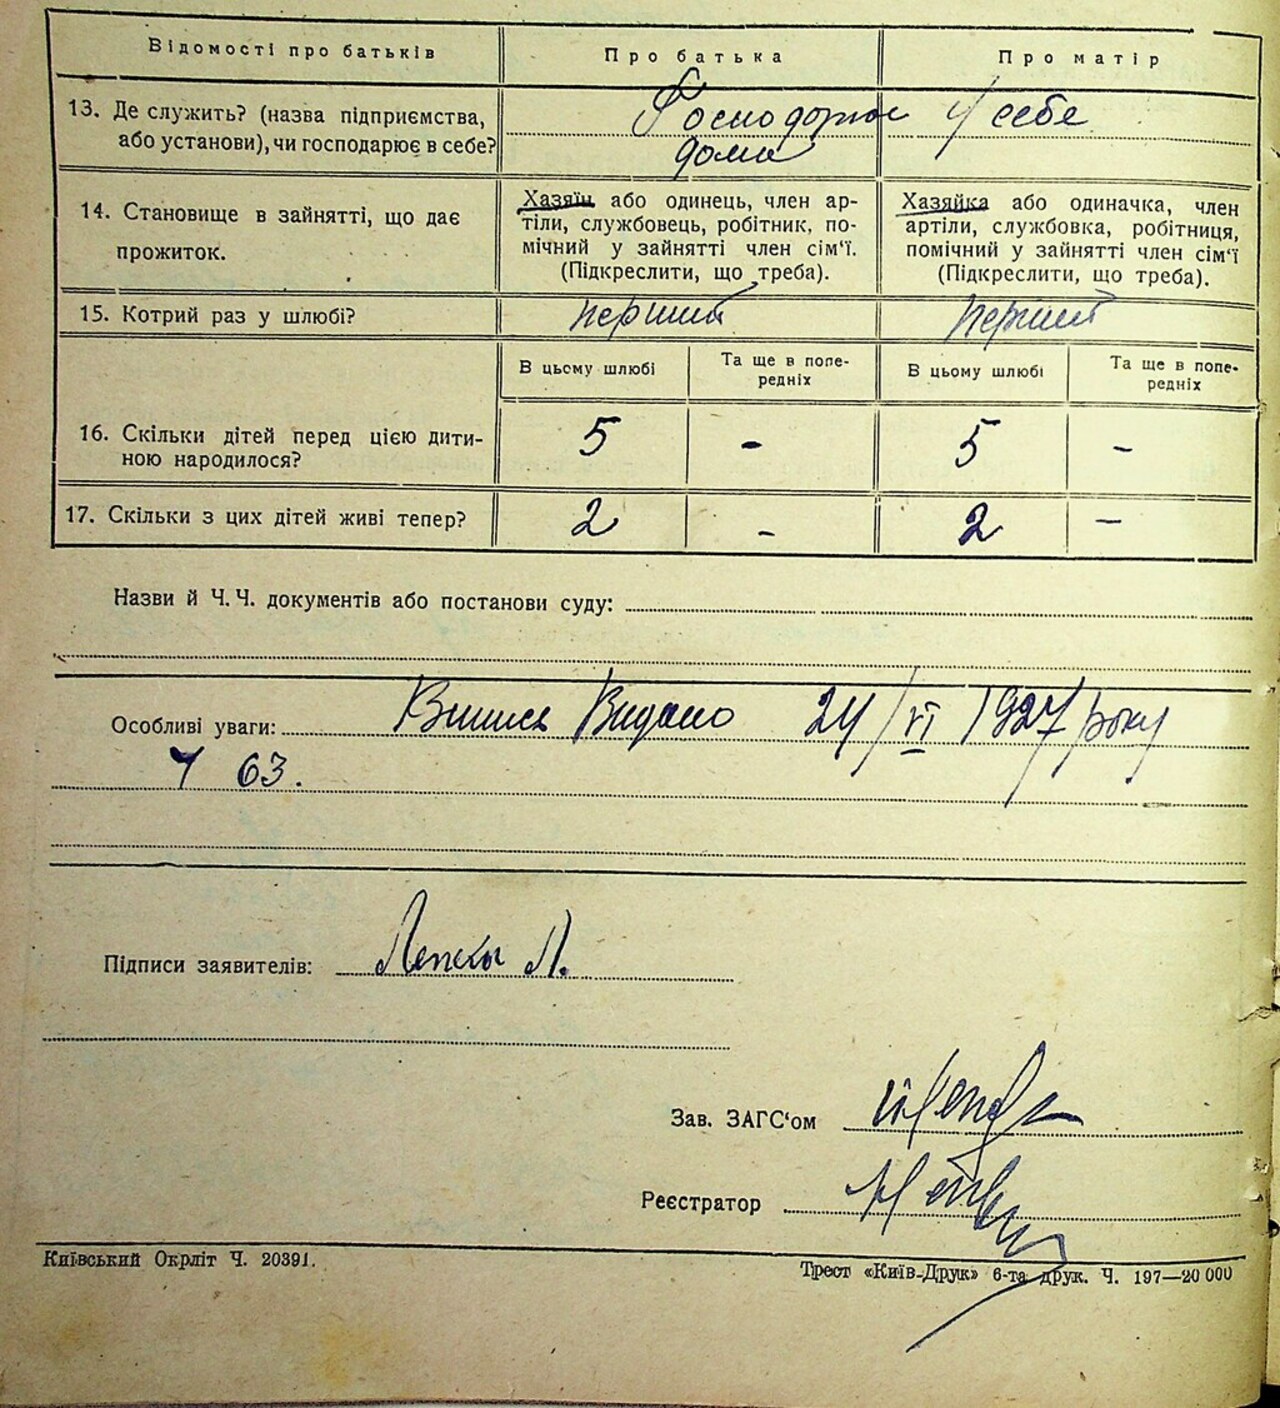 Відомості про батьків
Про батька
Про матір
13. Де служить? (назва підприємства, або установи), чи господарює в себе?
у себе
дома
14. Становище в зайнятті, що дає прожиток.
Хазяїн або одинець, член ар-
тіли, службовець, робітник, по-
мічний у зайнятті член сім'ї.
(Підкреслити, що треба).
Хазяйка або одиначка, член
артіли, службовка, робітниця,
помічний у зайнятті член сім'ї
(Підкреслити, що треба).
15. Котрий раз у шлюбі?
перший
перший
В цьому шлюбі
Та ще в попе-
редніх
В цьому шлюбі
Та ще в попе-
редніх
16. Скільки дітей перед цією дити-
ною народилося?
5 - 5 -
17. Скільки з цих дітей живі тепер?
2 - 2 -
Назви й Ч.Ч. документів або постанови суду:
Особливі уваги: Випись Видано 24/VI 1927 року
Ч 63.
Підписи заявителів:
Зав. ЗАГС'ом
Реєстратор
Київський Окрліт Ч. 20391.
Трест «Київ-Друк» 6-та друк. Ч. 197—20 000